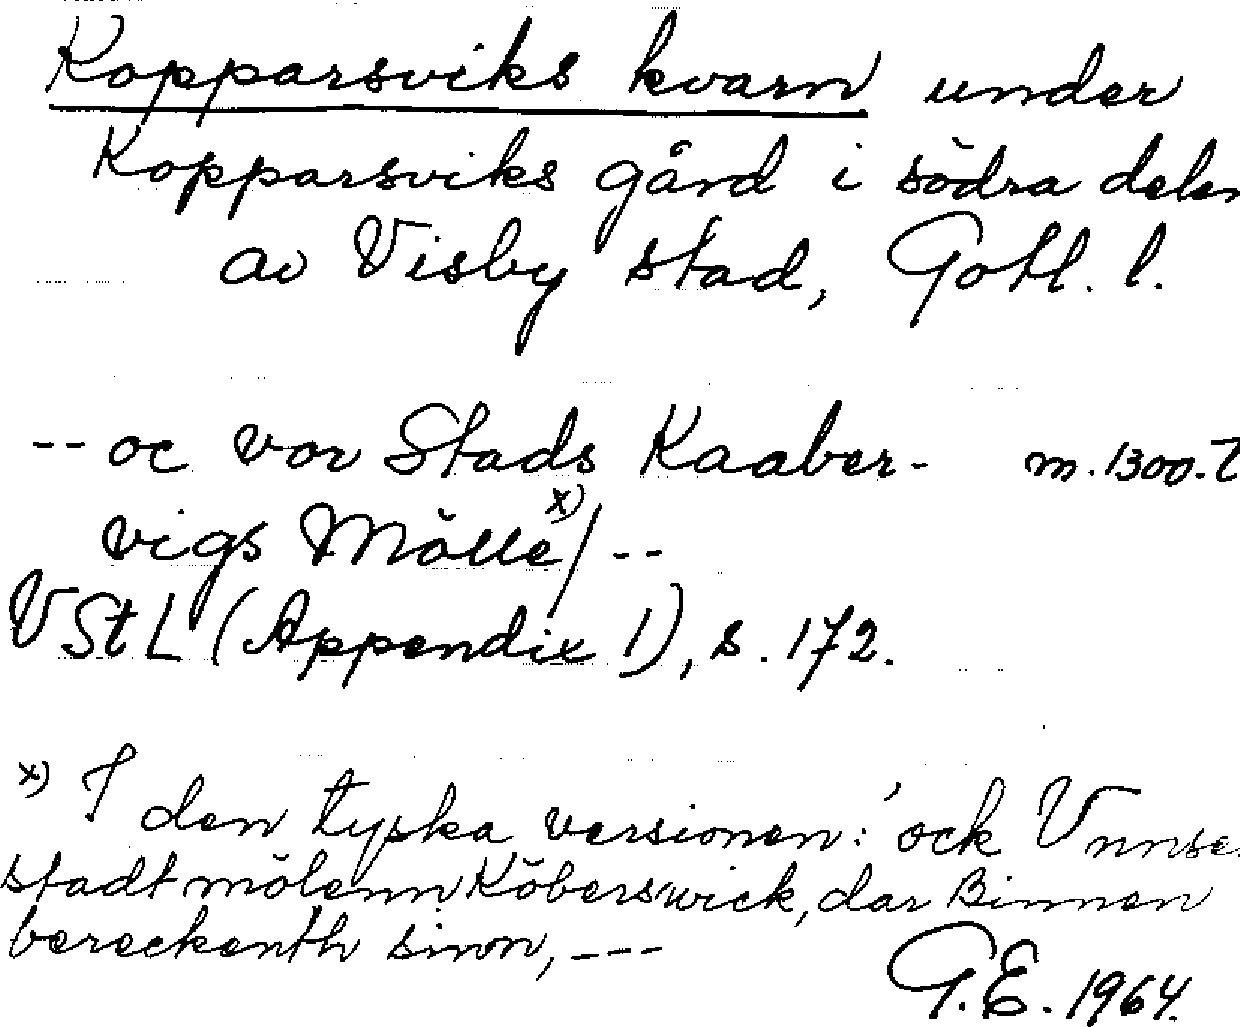 Kopparsviks kvarn under
Kopparsviks gård i södra delen
av Visby stad, Gotl. l.
-- oc vor Stads Kaaber- m. 1300-
vigs Mölle x) / --
VStL (Appendix 1), s. 172.
x) I den tyska versionen: 'ock Vnnse
stadt mölenn Köberswick, dar Binnen
bereckenth sinon, ---
G.E. 1964.